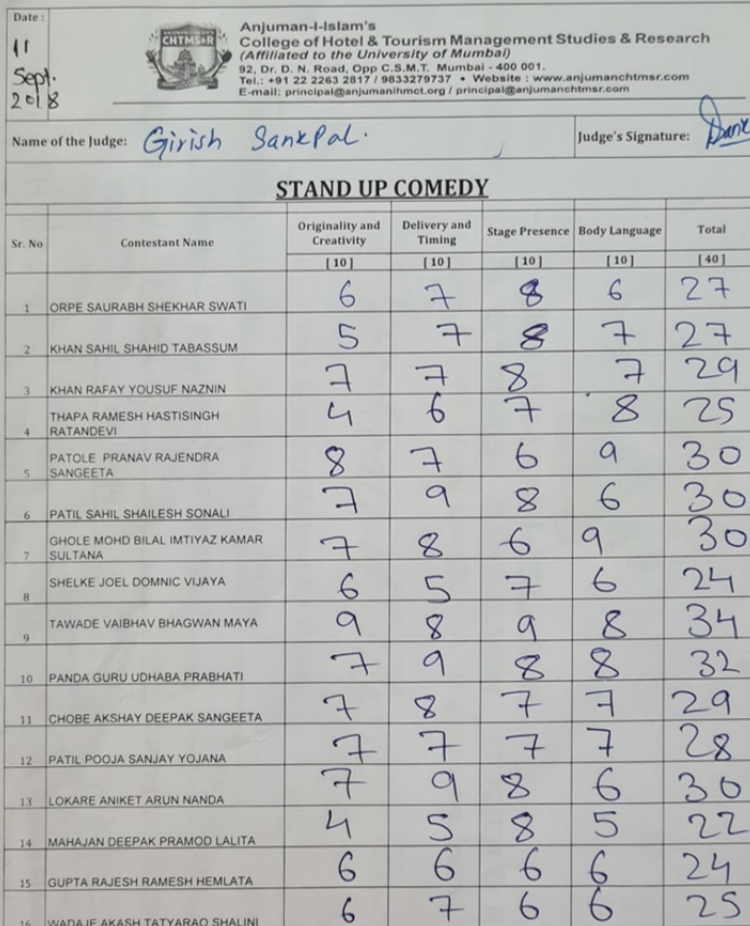 Date :
11
Sept.
2018
CHTMS&R
Anjuman-I-Islam's
College of Hotel & Tourism Management Studies & Research
(Affiliated to the University of Mumbai)
92, Dr. D. N. Road, Opp C.S.M.T. Mumbai - 400 001.
Tel.: +91 22 2263 2817 / 9833279737 • Website : www.anjumanchtmsr.com
E-mail: principal@anjumanihmct.org / principal@anjumanchtmsr.com
Name of the Judge: Girish Sankpal.
Judge's Signature:
STAND UP COMEDY
Sr. No Contestant Name Originality and Creativity Delivery and Timing Stage Presence Body Language Total
[ 10 ] [ 10 ] [ 10 ] [ 10 ] [ 40 ]
1 ORPE SAURABH SHEKHAR SWATI 6 7 8 6 27
2 KHAN SAHIL SHAHID TABASSUM 5 7 8 7 27
3 KHAN RAFAY YOUSUF NAZNIN 7 7 8 7 29
4 THAPA RAMESH HASTISINGH RATANDEVI 4 6 7 8 25
5 PATOLE PRANAV RAJENDRA SANGEETA 8 7 6 9 30
6 PATIL SAHIL SHAILESH SONALI 7 9 8 6 30
7 GHOLE MOHD BILAL IMTIYAZ KAMAR SULTANA 7 8 6 9 30
8 SHELKE JOEL DOMNIC VIJAYA 6 5 7 6 24
9 TAWADE VAIBHAV BHAGWAN MAYA 9 8 9 8 34
10 PANDA GURU UDHABA PRABHATI 7 9 8 8 32
11 CHOBE AKSHAY DEEPAK SANGEETA 7 8 7 7 29
12 PATIL POOJA SANJAY YOJANA 7 7 7 7 28
13 LOKARE ANIKET ARUN NANDA 7 9 8 6 30
14 MAHAJAN DEEPAK PRAMOD LALITA 4 5 8 5 22
15 GUPTA RAJESH RAMESH HEMLATA 6 6 6 6 24
16 WADAJE AKASH TATYARAO SHALINI 6 7 6 6 25